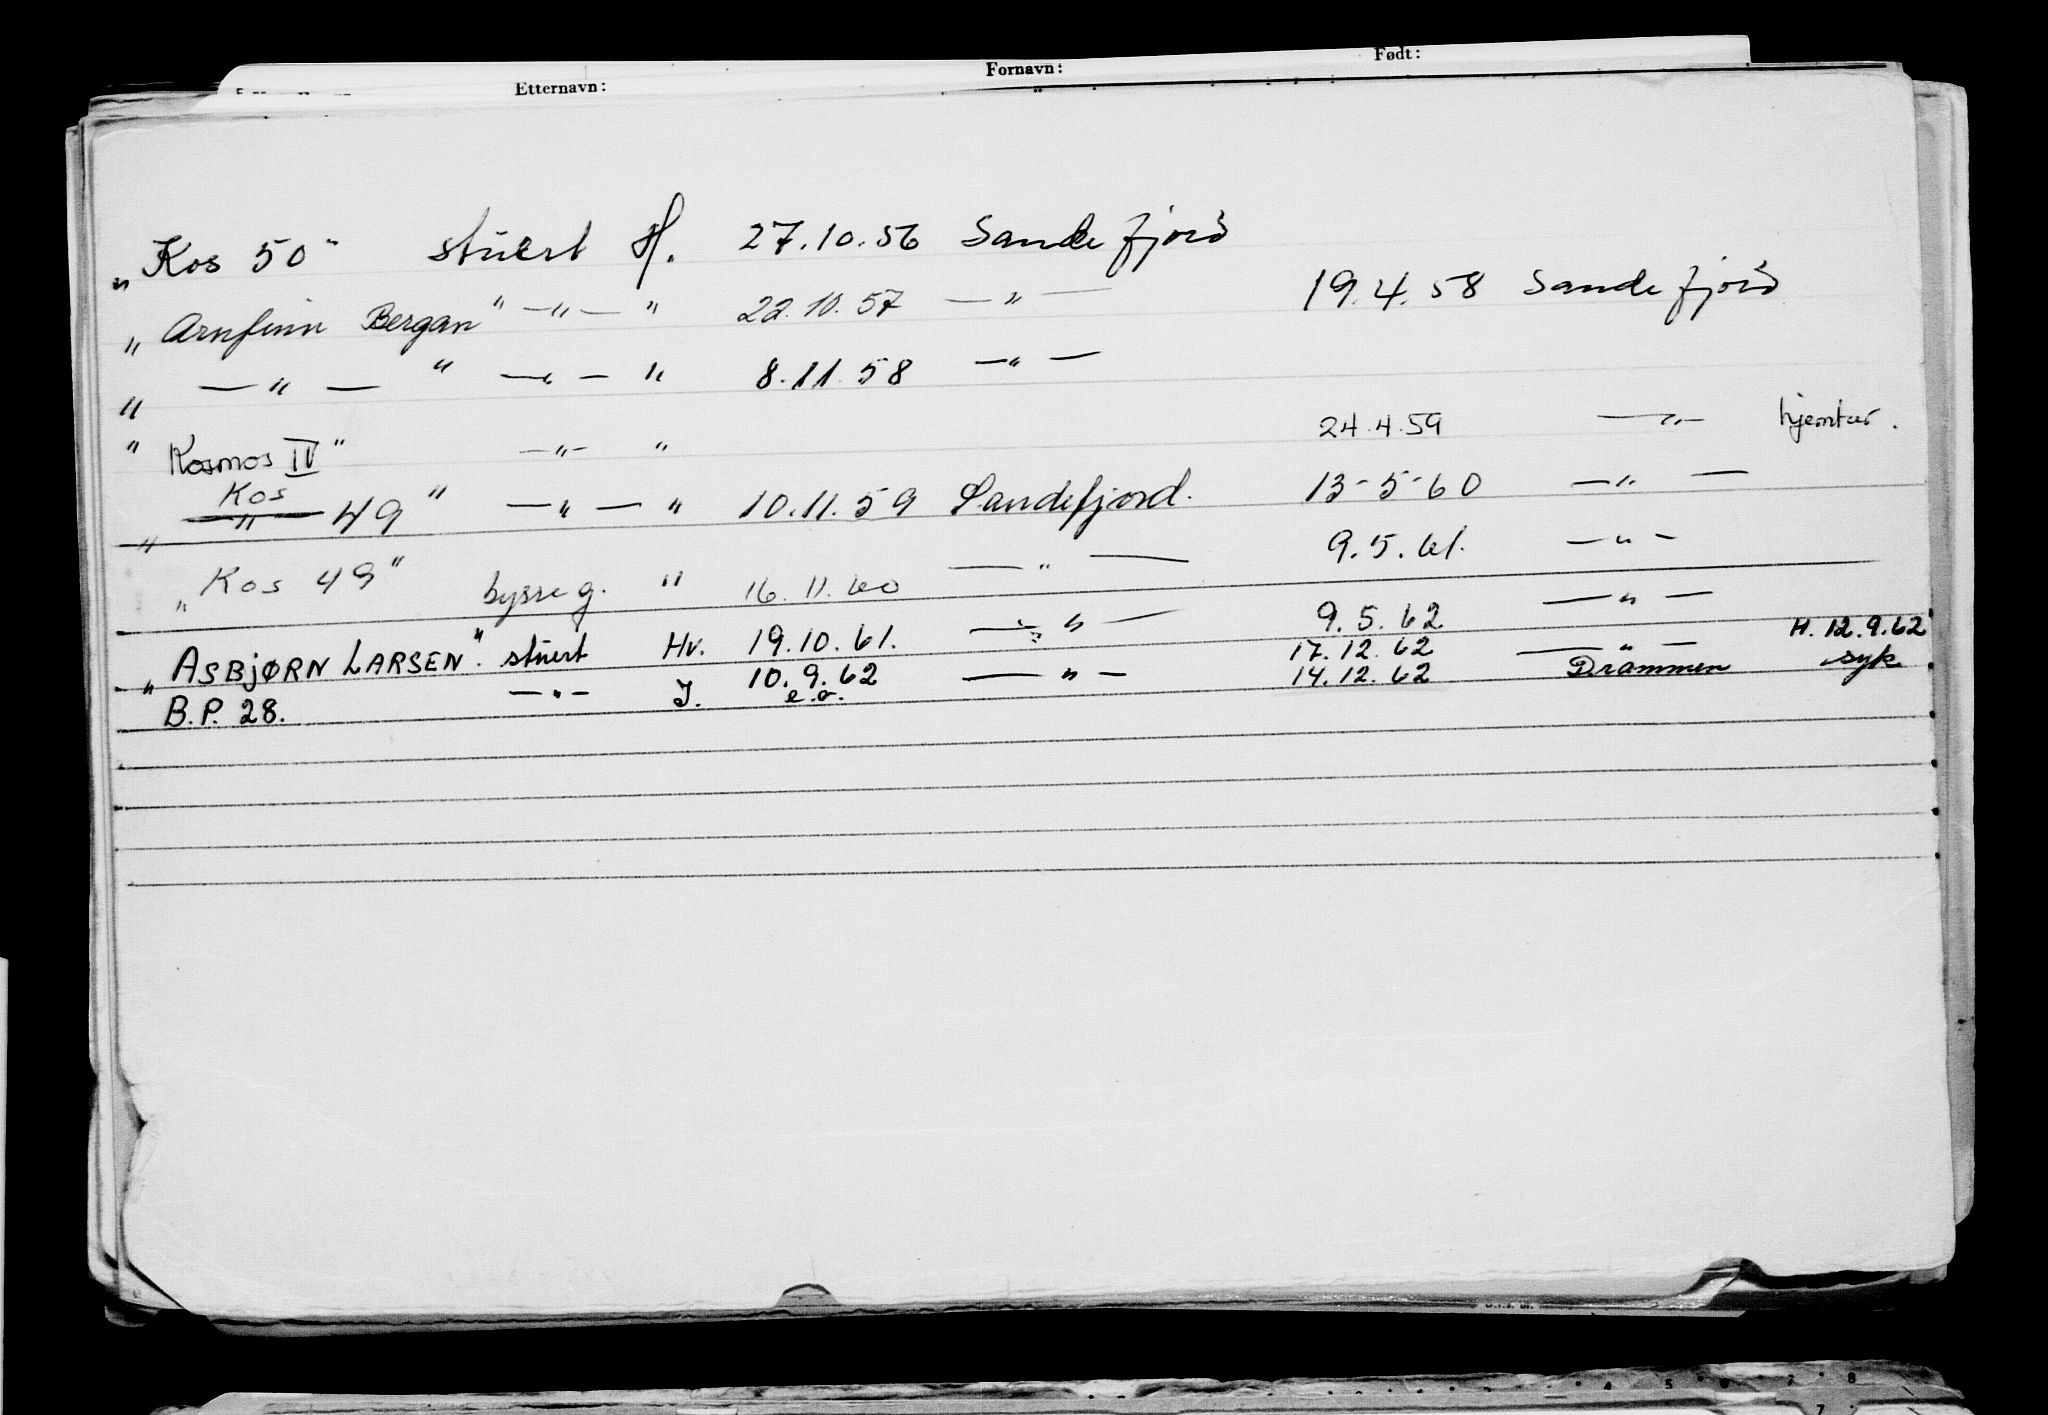 Etternavn: Fornavn: Født:
„Kos 50" stuert H. 27.10.56 Sandefjord
„Arnfinn Bergan" —"— " 22.10.57 —"— 19.4.58 Sandefjord
„ —"— " —"— " 8.11.58 —"—
" Kosmos IV" —"— " 24.4.59 —"— hjemtur.
Kos
„ —"— 49 " —"— " 10.11.59 Sandefjord. 13-5-60 —"—
„Kos 49" bysseg. " 16.11.60 —"— 9.5.61. —"—
„ASBJØRN LARSEN". stuert Hv. 19.10.61. —"— 9.5.62 —"—
B.P. 28. —"— J. 10.9.62 —"— 17.12.62 —"— H. 12.9.62
e.o. 14.12.62 Drammen syk